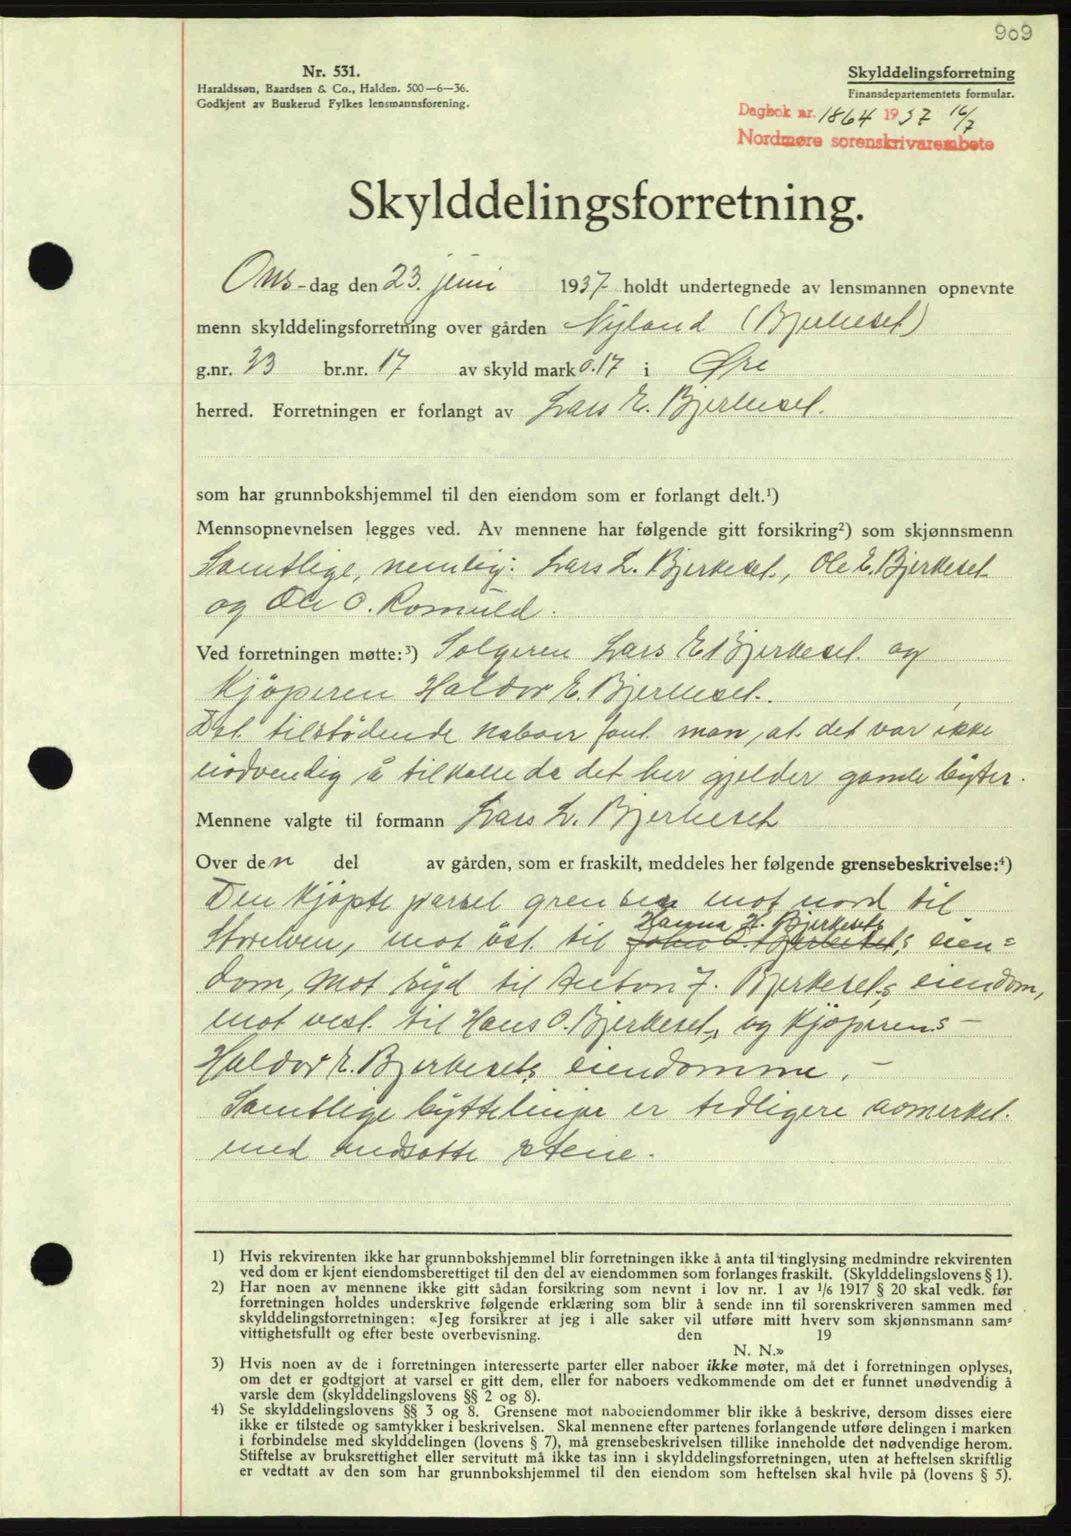 909
Nr. 531.
Haraldssøn, Baardsen & Co., Halden. 500—6—36.
Godkjent av Buskerud Fylkes lensmannsforening.
Skylddelingsforretning
Finansdepartementets formular.
Dagbok nr. 1864 1937 16/7
Nordmøre sorenskrivarembete
Skylddelingsforretning.
Ons-dag den 23. juni 1937 holdt undertegnede av lensmannen opnevnte
menn skylddelingsforretning over gården Nyland (Bjerkeset)
g.nr. 23 br.nr. 17 av skyld mark 0.17 i Øre
herred. Forretningen er forlangt av Lars E. Bjerkeset.
som har grunnbokshjemmel til den eiendom som er forlangt delt.¹)
Mennsopnevnelsen legges ved. Av mennene har følgende gitt forsikring²) som skjønnsmenn
Samtlige, nemlig: Lars L. Bjerkeset, Ole E. Bjerkeset
og Ole O. Romuld.
Ved forretningen møtte:³) Selgeren Lars E Bjerkeset og
Kjöperen Haldor E. Bjerkeset.
Det tilstödende naboer fant man, at det var ikke
nödvendig å tilkalle da det her gjelder gamle byter.
Mennene valgte til formann Lars L. Bjerkeset
Over den del av gården, som er fraskilt, meddeles her følgende grensebeskrivelse:⁴)
Den kjöpte parsel grenser mot nord til
Hanna H. Bjerkesets
Storelven, mot öst til John O. Bjerkesets eien=
dom, mot syd til Anton J. Bjerkesets eiendom,
mot vest til Hans O. Bjerkeset, og kjöperens —
Haldor E. Bjerkesets eiendomme. —
Samtlige byttelinjer er tidligere avmerket
med nedsatte stene.
1) Hvis rekvirenten ikke har grunnbokshjemmel blir forretningen ikke å anta til tinglysing medmindre rekvirenten
ved dom er kjent eiendomsberettiget til den del av eiendommen som forlanges fraskilt. (Skylddelingslovens § 1).
2) Har noen av mennene ikke gitt sådan forsikring som nevnt i lov nr. 1 av 1/6 1917 § 20 skal vedk. før
forretningen holdes underskrive følgende erklæring som blir å sende inn til sorenskriveren sammen med
skylddelingsforretningen: «Jeg forsikrer at jeg i alle saker vil utføre mitt hverv som skjønnsmann sam=
vittighetsfullt og efter beste overbevisning. den 19
N. N.»
3) Hvis noen av de i forretningen interesserte parter eller naboer ikke møter, må det i forretningen oplyses,
om det er godtgjort at varsel er gitt dem, eller for naboers vedkommende om det er funnet unødvendig å
varsle dem (skylddelingslovens §§ 2 og 8).
4) Se skylddelingslovens §§ 3 og 8. Grensene mot naboeiendommer blir ikke å beskrive, dersom disses eiere
ikke er tilstede og samtykker i beskrivelsen. Skal mennene efter partenes forlangende utføre delingen i marken
i forbindelse med skylddelingen (lovens § 7), må grensebeskrivelsen tillike inneholde det nødvendige herom.
Stiftelse av bruksrettighet eller servitutt må ikke tas inn i skylddelingsforretningen, uten at heftelsen skriftlig
er vedtatt av den som har grunnbokshjemmel til den eiendom som heftelsen skal hvile på (lovens § 5).